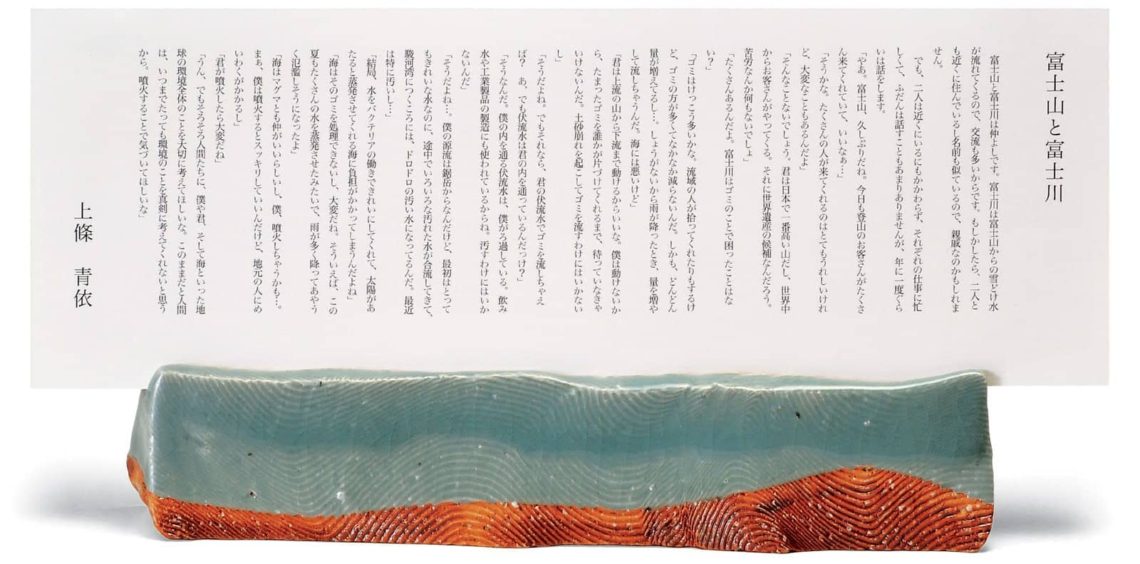 富士山と富士川
富士山と富士川は仲よしです。富士川は富士山からの雪どけ水
が流れてくるので、交流も多いからです。もしかしたら、二人と
も近くに住んでいるし名前も似ているので、親戚なのかもしれま
せん。
でも、二人は近くにいるにもかかわらず、それぞれの仕事に忙
しくて、ふだんは話すこともあまりありませんが、年に一度くら
いは話をします。
「やあ。富士山、久しぶりだね。今日も登山のお客さんがたくさ
ん来てくれていて、いいなぁ…」
「そうかな。たくさんの人が来てくれるのはとてもうれしいけれ
ど、大変なこともあるんだよ」
「そんなことないでしょう。君は日本で一番高い山だし、世界中
からお客さんがやってくる。それに世界遺産の候補なんだろう。
苦労なんか何もないでしょ」
「たくさんあるんだよ。富士川はゴミのことで困ったことはな
い？」
「ゴミはけっこう多いかな。流域の人が拾ってくれたりもするけ
ど、ゴミの方が多くてなかなか減らないんだ。しかも、どんどん
量が増えてるし…。しょうがないから雨が降ったとき、量を増や
して流しちゃうんだ。海には悪いけど」
「君は上流の山から下流まで動けるからいいな。僕は動けないか
ら、たまったゴミを誰かが片づけてくれるまで、待っていなきゃ
いけないんだ。土砂崩れを起こしてゴミを流すわけにはいかない
し」
「そうだよね。でもそれなら、君の伏流水でゴミを流しちゃえ
ば？　あ、でも伏流水は君の内を通っているんだっけ？」
「そうなんだ。僕の内を通る伏流水は、僕がろ過している。飲み
水や工業製品の製造にも使われているからね。汚すわけにはいか
ないんだ」
「そうだよね…。僕の源流は鋸岳からなんだけど、最初はとって
もきれいな水なのに、途中でいろいろな汚れた水が合流してきて、
駿河湾につくころには、ドロドロの汚い水になってるんだ。最近
は特に汚いし…」
「結局、水をバクテリアの働きできれいにしてくれて、太陽があ
たると蒸発させてくれる海に負担がかかってしまうんだよね」
「海はそのゴミを処理できないし、大変だね。そういえば、この
夏もたくさんの水を蒸発させたみたいで、雨が多く降ってあやう
く氾濫しそうになったよ」
「海はマグマとも仲がいいらしいし、僕、噴火しちゃうかも…。
まぁ、僕は噴火するとスッキリしていいんだけど、地元の人にめ
いわくがかかるし」
「君が噴火したら大変だね」
「うん、でもそろそろ人間たちに、僕や君、そして海といった地
球の環境全体のことを大切に考えてほしいな。このままだと人間
は、いつまでたっても環境のことを真剣に考えてくれないと思う
から。噴火することで気づいてほしいな」
上條　青依